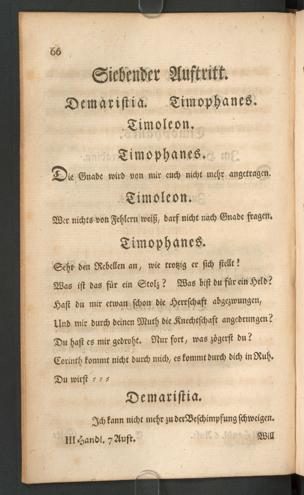 66
Siebender Auftritt.
Demaristia. Timophanes.
Timoleon.
Timophanes.
Die Gnade wird von mir euch nicht mehr angetragen.
Timoleon.
Wer nichts von Fehlern weiß, darf nicht nach Gnade fragen.
Timophanes.
Seht den Rebellen an, wie trotzig er sich stellt!
Was ist das für ein Stolz? Was bist du für ein Held?
Hast du mir etwan schon die Herrschaft abgezwungen,
Und mir durch deinen Muth die Knechtschaft angedrungen?
Du hast es mir gedroht. Nur fort, was zögerst du?
Corinth kommt nicht durch mich, es kommt durch dich in Ruh.
Du wirst = = =
Demaristia.
Jch kann nicht mehr zu der Beschimpfung schweigen.
III Handl. 7 Auft. Will